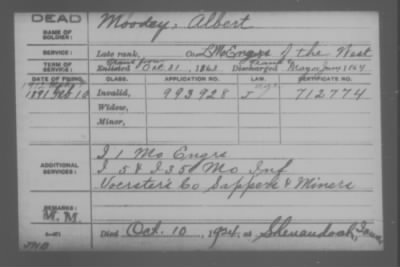 DEAD
NAME OF SOLDIER:
Moodey, Albert
SERVICE:
Late rank, Co. L Mo Engrs of the West
TERM OF SERVICE:
Enlisted Oct 31, 1863 Discharged May or June 1864
DATE OF FILING. CLASS. APPLICATION NO. LAW. CERTIFICATE NO.
1891 Feb 10 Invalid, 993928 J 712774
Widow,
Minor,
ADDITIONAL SERVICES:
I 1 Mo Engrs
I 5 & I 35 Mo Inf
Voerster's Co Sappers & Miners
REMARKS:
M.M.
Died Oct. 10, 1924, at Shenandoah, Iowa